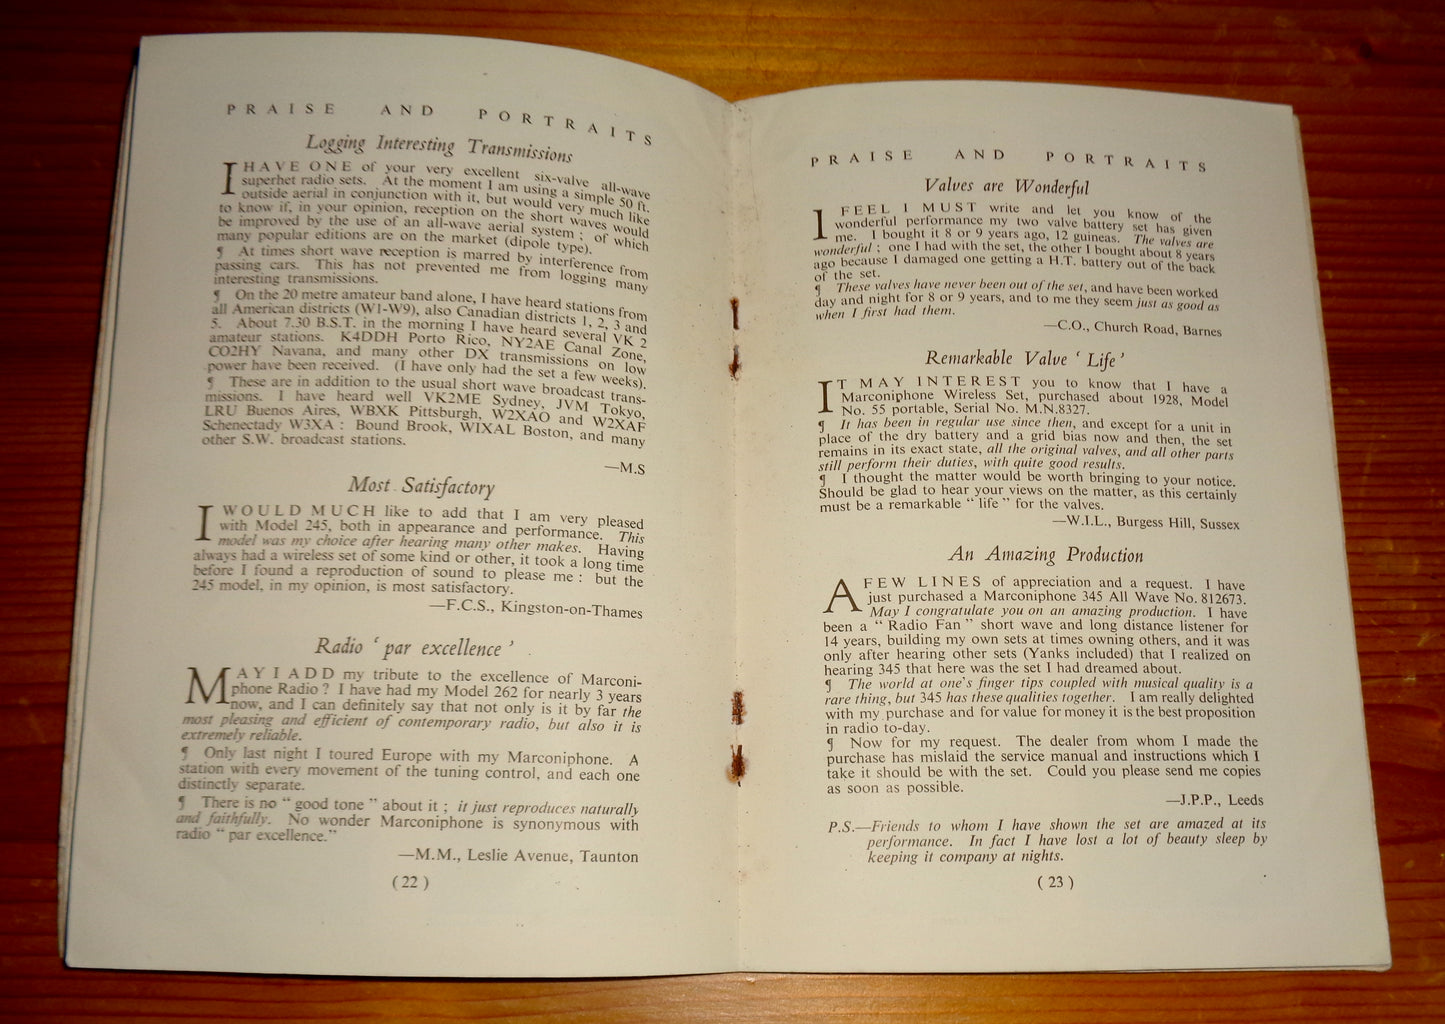 PRAISE AND PORTRAITS
Logging Interesting Transmissions
I HAVE ONE of your very excellent six-valve all-wave
superhet radio sets. At the moment I am using a simple 50 ft.
outside aerial in conjunction with it, but would very much like
to know if, in your opinion, reception on the short waves would
be improved by the use of an all-wave aerial system ; of which
many popular editions are on the market (dipole type).
¶ At times short wave reception is marred by interference from
passing cars. This has not prevented me from logging many
interesting transmissions.
¶ On the 20 metre amateur band alone, I have heard stations from
all American districts (W1-W9), also Canadian districts 1, 2, 3 and
5. About 7.30 B.S.T. in the morning I have heard several VK 2
amateur stations. K4DDH Porto Rico, NY2AE Canal Zone,
CO2HY Navana, and many other DX transmissions on low
power have been received. (I have only had the set a few weeks).
¶ These are in addition to the usual short wave broadcast trans-
missions. I have heard well VK2ME Sydney, JVM Tokyo,
LRU Buenos Aires, WBXK Pittsburgh, W2XAO and W2XAF
Schenectady W3XA : Bound Brook, WIXAL Boston, and many
other S.W. broadcast stations.
—M.S
Most Satisfactory
I WOULD MUCH like to add that I am very pleased
with Model 245, both in appearance and performance. This
model was my choice after hearing many other makes. Having
always had a wireless set of some kind or other, it took a long time
before I found a reproduction of sound to please me : but the
245 model, in my opinion, is most satisfactory.
—F.C.S., Kingston-on-Thames
Radio ‘ par excellence ’
MAY I ADD my tribute to the excellence of Marconi-
phone Radio ? I have had my Model 262 for nearly 3 years
now, and I can definitely say that not only is it by far the
most pleasing and efficient of contemporary radio, but also it is
extremely reliable.
¶ Only last night I toured Europe with my Marconiphone. A
station with every movement of the tuning control, and each one
distinctly separate.
¶ There is no “ good tone ” about it ; it just reproduces naturally
and faithfully. No wonder Marconiphone is synonymous with
radio “ par excellence.”
—M.M., Leslie Avenue, Taunton
( 22 )
PRAISE AND PORTRAITS
Valves are Wonderful
I FEEL I MUST write and let you know of the
wonderful performance my two valve battery set has given
me. I bought it 8 or 9 years ago, 12 guineas. The valves are
wonderful ; one I had with the set, the other I bought about 8 years
ago because I damaged one getting a H.T. battery out of the back
of the set.
¶ These valves have never been out of the set, and have been worked
day and night for 8 or 9 years, and to me they seem just as good as
when I first had them.
—C.O., Church Road, Barnes
Remarkable Valve ‘ Life ’
IT MAY INTEREST you to know that I have a
Marconiphone Wireless Set, purchased about 1928, Model
No. 55 portable, Serial No. M.N.8327.
¶ It has been in regular use since then, and except for a unit in
place of the dry battery and a grid bias now and then, the set
remains in its exact state, all the original valves, and all other parts
still perform their duties, with quite good results.
¶ I thought the matter would be worth bringing to your notice.
Should be glad to hear your views on the matter, as this certainly
must be a remarkable “ life ” for the valves.
—W.I.L., Burgess Hill, Sussex
An Amazing Production
A FEW LINES of appreciation and a request. I have
just purchased a Marconiphone 345 All Wave No. 812673.
May I congratulate you on an amazing production. I have
been a “ Radio Fan ” short wave and long distance listener for
14 years, building my own sets at times owning others, and it was
only after hearing other sets (Yanks included) that I realized on
hearing 345 that here was the set I had dreamed about.
¶ The world at one's finger tips coupled with musical quality is a
rare thing, but 345 has these qualities together. I am really delighted
with my purchase and for value for money it is the best proposition
in radio to-day.
¶ Now for my request. The dealer from whom I made the
purchase has mislaid the service manual and instructions which I
take it should be with the set. Could you please send me copies
as soon as possible.
—J.P.P., Leeds
P.S.—Friends to whom I have shown the set are amazed at its
performance. In fact I have lost a lot of beauty sleep by
keeping it company at nights.
( 23 )